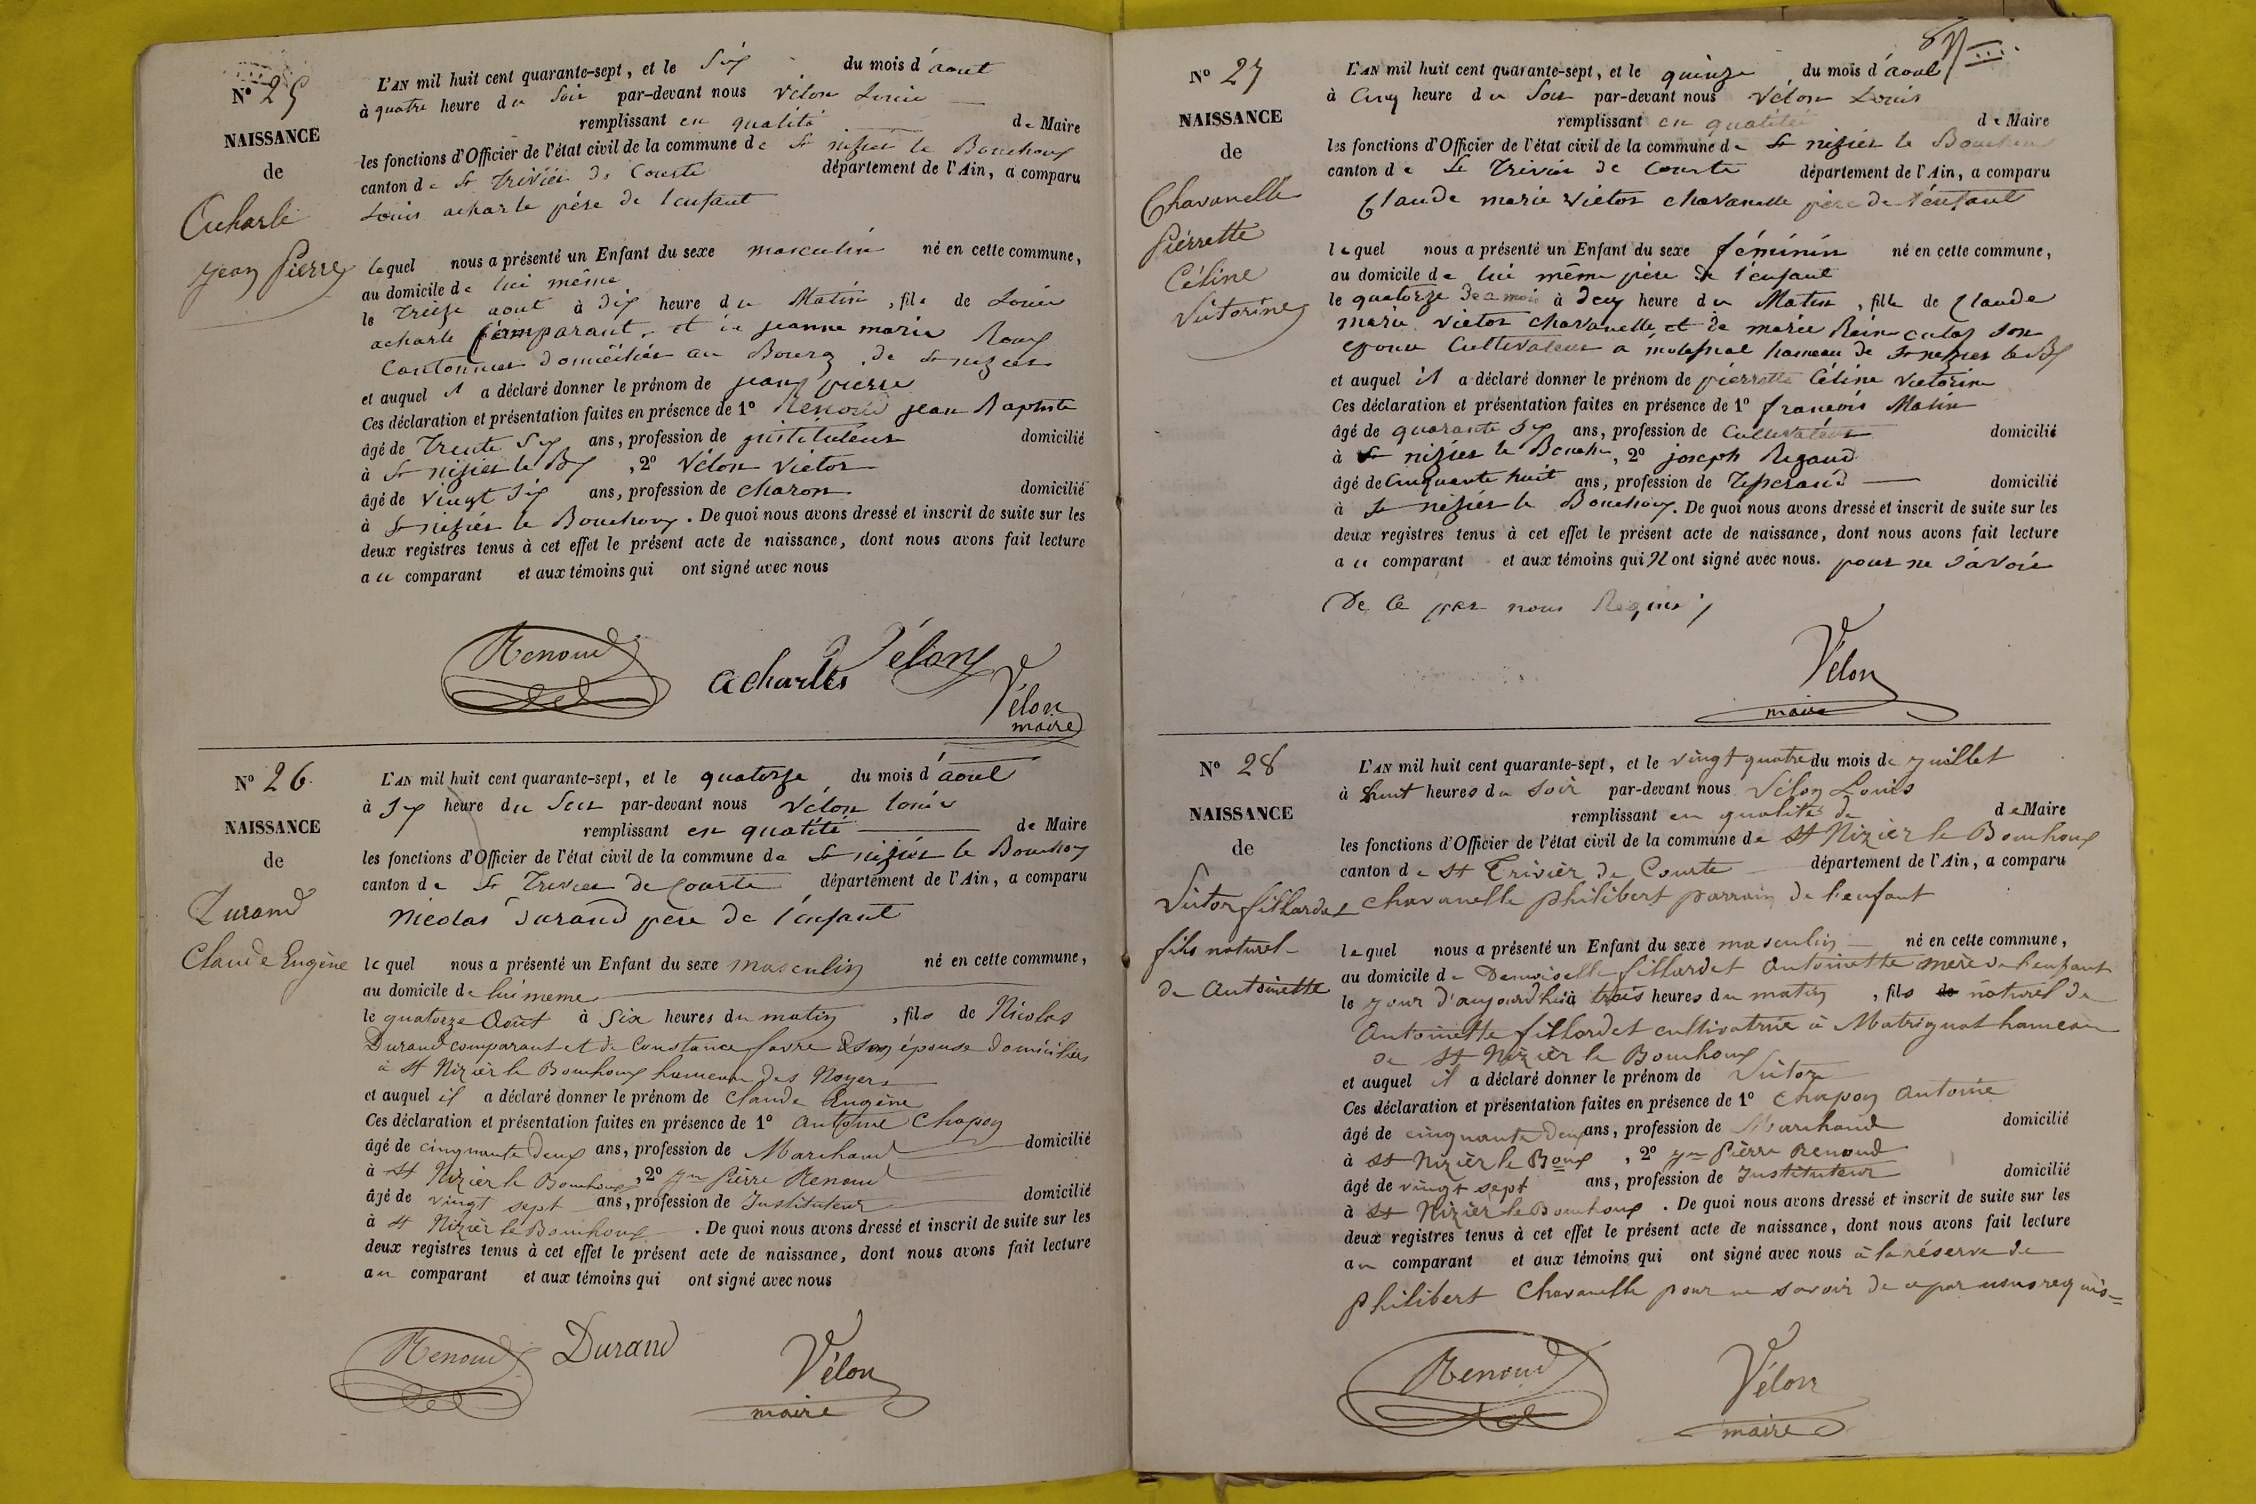 N° 25
NAISSANCE
de
Acharle
jean Pierre
L'AN mil huit cent quarante-sept, et le six du mois d'aout
à quatre heure du Soir par-devant nous Vélon Louis
remplissant en qualité de Maire
les fonctions d'Officier de l'état civil de la commune de St nizier le Bouchoux
canton de St Trivier de Courte département de l'Ain, a comparu
Louis acharle père de l'enfant
lequel nous a présenté un Enfant du sexe masculin né en cette commune,
au domicile de lui même
le Treize aout à dix heure du Matin, fils de Louis
acharle comparant, et de jeanne marie Roux
Cantonnier domicilié au Bourg de St nizier
et auquel il a déclaré donner le prénom de jean pierre
Ces déclaration et présentation faites en présence de 1° Renoud jean Baptiste
âgé de Trente Six ans, profession de instituteur domicilié
à St nizier le Bx, 2° Vélon Victor
âgé de vingt Six ans, profession de charon domicilié
à St nizier le Bouchoux. De quoi nous avons dressé et inscrit de suite sur les
deux registres tenus à cet effet le présent acte de naissance, dont nous avons fait lecture
au comparant et aux témoins qui ont signé avec nous
Renoud acharles Vélon
Vélon
maire
N° 26
NAISSANCE
de
Durand
Claude Eugène
L'AN mil huit cent quarante-sept, et le quatorze du mois d'aout
à Six heure du Soir par-devant nous Vélon Louis
remplissant en qualité de Maire
les fonctions d'Officier de l'état civil de la commune de St nizier le Bouchoux
canton de St Trivier de Courte département de l'Ain, a comparu
Nicolas Durand père de l'enfant
lequel nous a présenté un Enfant du sexe masculin né en cette commune,
au domicile de lui meme
le quatorze Août à six heures du matin, fils de Nicolas
Durand comparant et de Constance favre son épouse domiciliés
à St Nizier le Bouchoux hameau des Noyers
et auquel il a déclaré donner le prénom de Claude Eugène
Ces déclaration et présentation faites en présence de 1° Antoine Chapon
âgé de cinquante deux ans, profession de Marchand domicilié
à St Nizier le Bouchoux, 2° Jn Pierre Renoud
âgé de vingt sept ans, profession de Instituteur domicilié
à St Nizier le Bouchoux. De quoi nous avons dressé et inscrit de suite sur les
deux registres tenus à cet effet le présent acte de naissance, dont nous avons fait lecture
au comparant et aux témoins qui ont signé avec nous
Renoud Durand Vélon
maire
N° 27
NAISSANCE
de
Chavanelle
Pierrette
Céline
Victorine
L'AN mil huit cent quarante-sept, et le quinze du mois d'aout
à Cinq heure du Soir par-devant nous Vélon Louis
remplissant en qualité de Maire
les fonctions d'Officier de l'état civil de la commune de St nizier le Bouchoux
canton de St Trivier de Courte département de l'Ain, a comparu
Claude marie Victor chavanelle père de l'enfant
lequel nous a présenté un Enfant du sexe féminin né en cette commune,
au domicile de lui même père de l'enfant
le quatorze de ce mois à deux heure du Matin, fille de Claude
marie Victor chavanelle et de marie son
épouse Cultivateur a hameau de St nizier le Bx
et auquel il a déclaré donner le prénom de pierrette Céline victorine
Ces déclaration et présentation faites en présence de 1° francois Matin
âgé de quarante Six ans, profession de Cultivateur domicilié
à St nizier le Bouchx, 2° joseph Regaud
âgé de Cinquante huit ans, profession de Tisserand domicilié
à St nizier le Bouchoux. De quoi nous avons dressé et inscrit de suite sur les
deux registres tenus à cet effet le présent acte de naissance, dont nous avons fait lecture
au comparant et aux témoins qui N ont signé avec nous. pour ne Savoir
De ce par nous Requis
Vélon
maire
N° 28
NAISSANCE
de
Victor fillardet
fils naturel
de Antoinette
L'AN mil huit cent quarante-sept, et le vingt quatre du mois de juillet
à huit heures du soir par-devant nous Vélon Louis
remplissant en qualité de de Maire
les fonctions d'Officier de l'état civil de la commune de St Nizier le Bouchoux
canton de St Trivier de Courte département de l'Ain, a comparu
Chavanelle philibert parrain de l'enfant
lequel nous a présenté un Enfant du sexe masculin né en cette commune,
au domicile de Demoiselle fillardet Antoinette mère de l'enfant
le jour d'aujourd'hui à trois heures du matin, fils naturel de
Antoinette fillardet cultivatrice à Matrignat hameau
de St Nizier le Bouchoux
et auquel il a déclaré donner le prénom de Victor
Ces déclaration et présentation faites en présence de 1° Chapon Antoine
âgé de cinquante deux ans, profession de Marchand domicilié
à St Nizier le Boux, 2° Jn Pierre Renoud
âgé de vingt sept ans, profession de Instituteur domicilié
à St Nizier le Bouchoux. De quoi nous avons dressé et inscrit de suite sur les
deux registres tenus à cet effet le présent acte de naissance, dont nous avons fait lecture
au comparant et aux témoins qui ont signé avec nous à la réserve de
Philibert Chavanelle pour ne savoir de ce par nous requis=
Renoud Vélon
maire